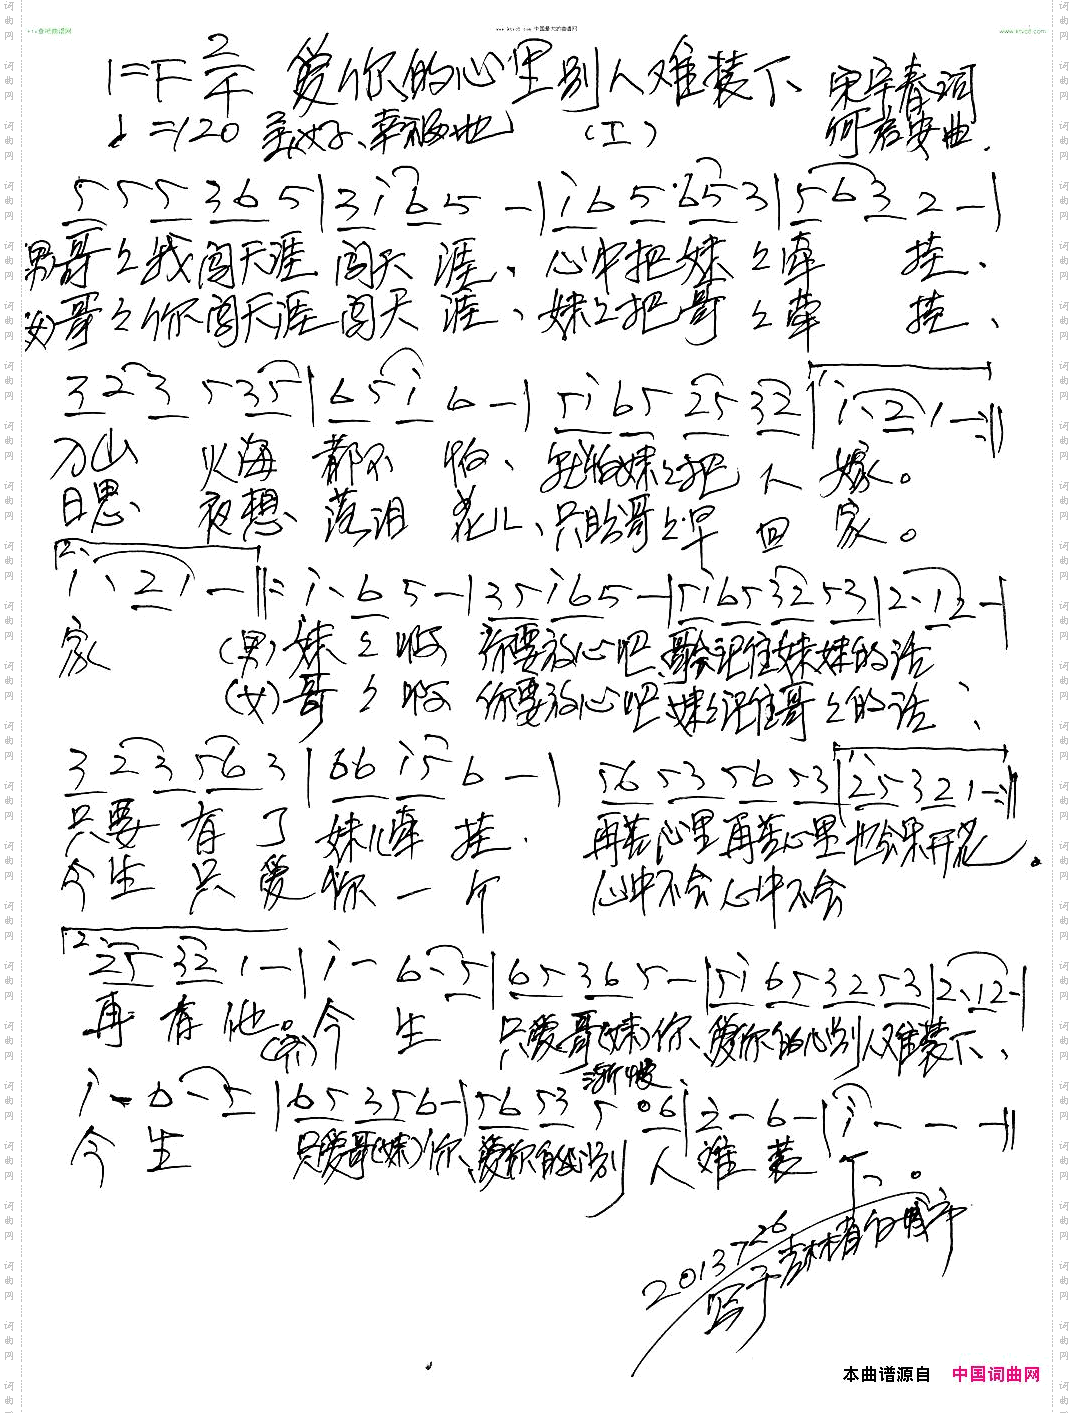 www.ktvc8.com 中国最大的曲谱网
www.ktvc8.com
1=F 2/4 爱你的心里别人难装下 宋宇春词
♩=120 美好、幸福地 (I) 何君安曲.
5 5 5 3 6 5 | 3 i 6 5 - | i 6 5 6 5 3 | 5 6 3 2 - |
男哥々我闯天涯 闯天 涯、 心中把妹々牵 挂、
女哥々你闯天涯 闯天 涯、 妹々把哥々牵 挂、
3 2 3 5 3 5 | 6 5 i 6 - | 5 i 6 5 2 5 3 2 | i. 2 1 - :||
刀山 火海 都不 怕、 就怕妹々把 人 嫁。
日思、 夜想、 落泪 花儿、 只盼哥々早 回 家。
2. i. 2 1 - ||: i. 6 5 - | 3 5 i 6 5 - | 5 i 6 5 3 2 5 3 | 2. 1 2 - |
家 (男) 妹 々 啊 你要放心吧、哥会记住妹妹的话
(女) 哥 々 啊 你要放心吧、妹会记住哥々的话;
3 2 3 5 6 3 | 6 6 i 5 6 - | 5 6 5 3 5 6 5 3 | 2 5 3 2 1 - :||
只要 有 了 妹儿牵 挂. 再苦心里再苦心里也会乐开花。
今生 只 爱 你 一 个 心中不会心中不会
2. 2 5 3 2 1 - | i - 6. 5 | 6 5 3 6 5 - | 5 i 6 5 3 2 5 3 | 2. 1 2 - |
再 有 他。 今 生 只爱哥(妹)你、爱你的心别人难装下、
渐慢
i - 6. 5 | 6 5 3 5 6 - | 5 6 5 3 5 0 6 | 2 - 6 - | i - - - ||
今 生 只爱哥(妹)你、爱你的心别 人 难 装 下。
2013726
写于吉林省白城市
本曲谱源自 中国词曲网